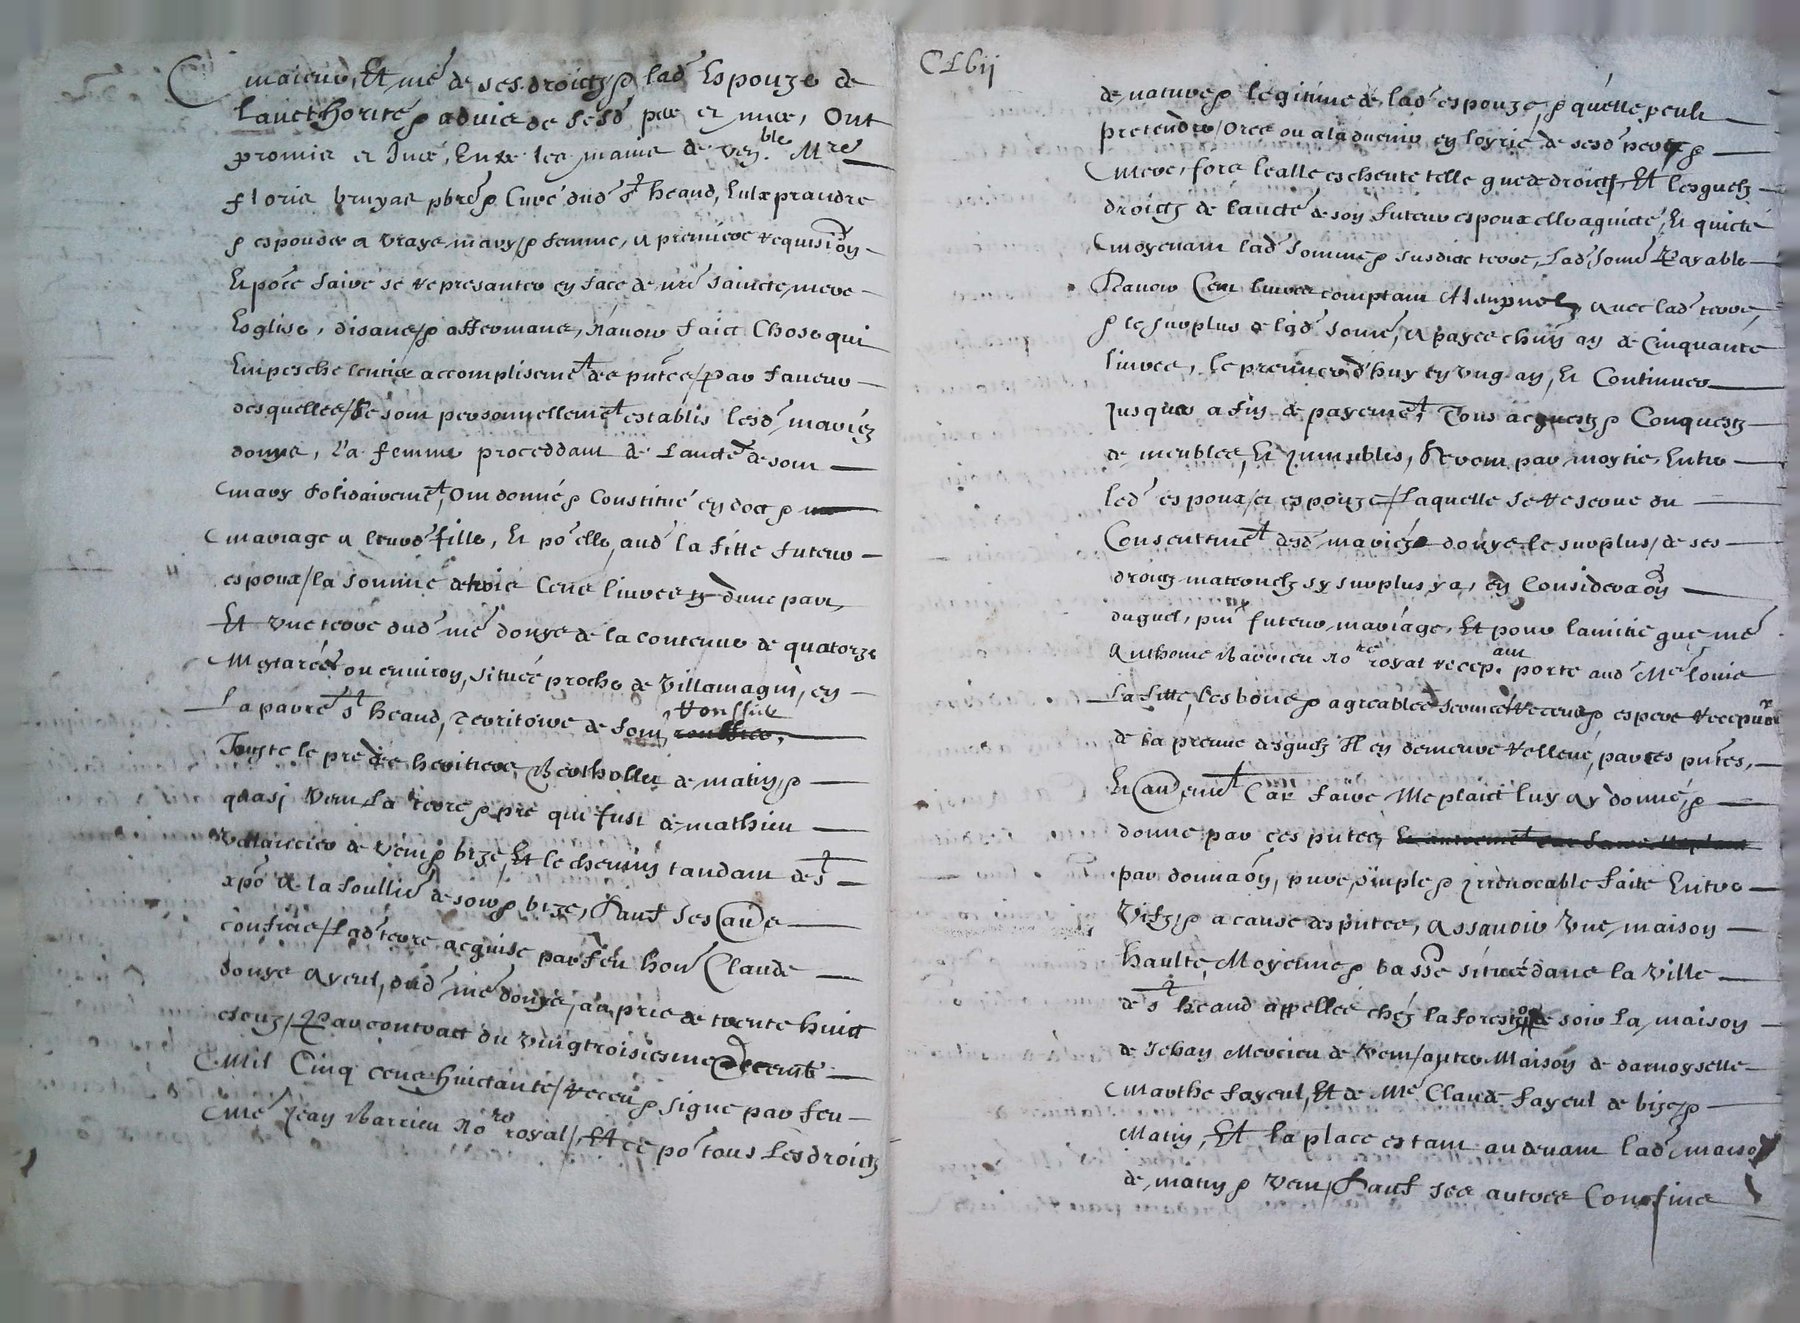 maieur, Et me de ses droictz & lad Espouze de
laucthorité & advis de sesd pere et mere, Ont
promis et Juré, Entre les mains de Ven.ble Mre
floris bruyas pbre & Curé dud St heand, Eulx prandre
& espouser a vraye mary & femme, a premiere requision
Et poce faire se representer en face de nre saincte mere
Esglise, disans & affermans, navoir faict Chose qui
Empesche lentier accomplisement des putes / Par faveur
desquelles / se sont personnellement establis lesd mariez
donye, La femme proceddant de laucté de son
mary solidairement, Ont donné & Constitué en dot &
mariage a leurd fille, Et po elle, aud la fitte futeur
espoux / la somme de trois Cens livres tz dune part,
Et une terre dud me donye de la contenue de quatorze
Mestarées ou environ, située proche de Villamagni, en
La parre St heand, territoire de son Vouffier
Jouste le pre des heritiers Berthollet de matin, &
quasj vent La terre & pre qui fust de mathieu
Vallancier de vent & bize, Et le chemin tandant de St
xpo a la foullieu de soir & bize, Sauf ses aues
confins / Lad terre acquise par feu hon Claude
donye ayeul, dud me donye, a a pris de trente huict
escuz, Par contract du vingtroisiesme Decembe
Mil Cinq cens huictante / receu & signe par feu
Me Jean Barrieu Nore royal / Et ce po tous Les droictz
CLbij
de nature & legitime de lad espouze, & quelle peult
pretendre / Ores ou a ladvenir en loyrie de sesd pere &
Mere, fors lealle escheute telle que de droict, Et lesquelz
droictz de laucté de son futeur espoux elle a quicté, Et quicte
moyenant lad somme & susdicte terre, Lad some Payable
Scavoir Cent livres comptant Avec lad terre,
& le surplus de lad some, a payer chun an de Cinquante
livres, le premier dhuy en ung an, Et Continuer
Jusques a fin de payement, Tous acquestz & Conquestz
de meubles, Et Immeubles, Seront par moytie, Entre
led espoux / et espouze / Laquelle se reserve du
Consentement desd mariez donye le surplus / de ses
droictz maternelz sy surplus y a, en Consideraon
duquel, put futeur mariage, Et pour lamitie que me
Anthoine Barrieu Nore royal recep.ant porte aud Me louis
La fitte, les bons & agreables services receus & espere recepvoir
de la preuve desquelz Il en demeure relleve, par ces putes,
Et autremt Car faire Me plaict luy ay donné, &
donne par ces putes, Et autrement Car faire Me plaict
par donnaon, pure, simple & irrevocable faite Entre
Vifz, & a cause des putes, Assavoir Une maison
haulte, Moyenne & basse située dans la Ville
de St heand appellée chéz la forestz de soir La maison
de Jehan Mercieu de vent / autre Maison de damoyselle
Marthe fayeul, Et de Me Claude fayeul de bize &
Matin, Et la place estant audevant lad maison
de matin & vent / Sauf ses autres Confins